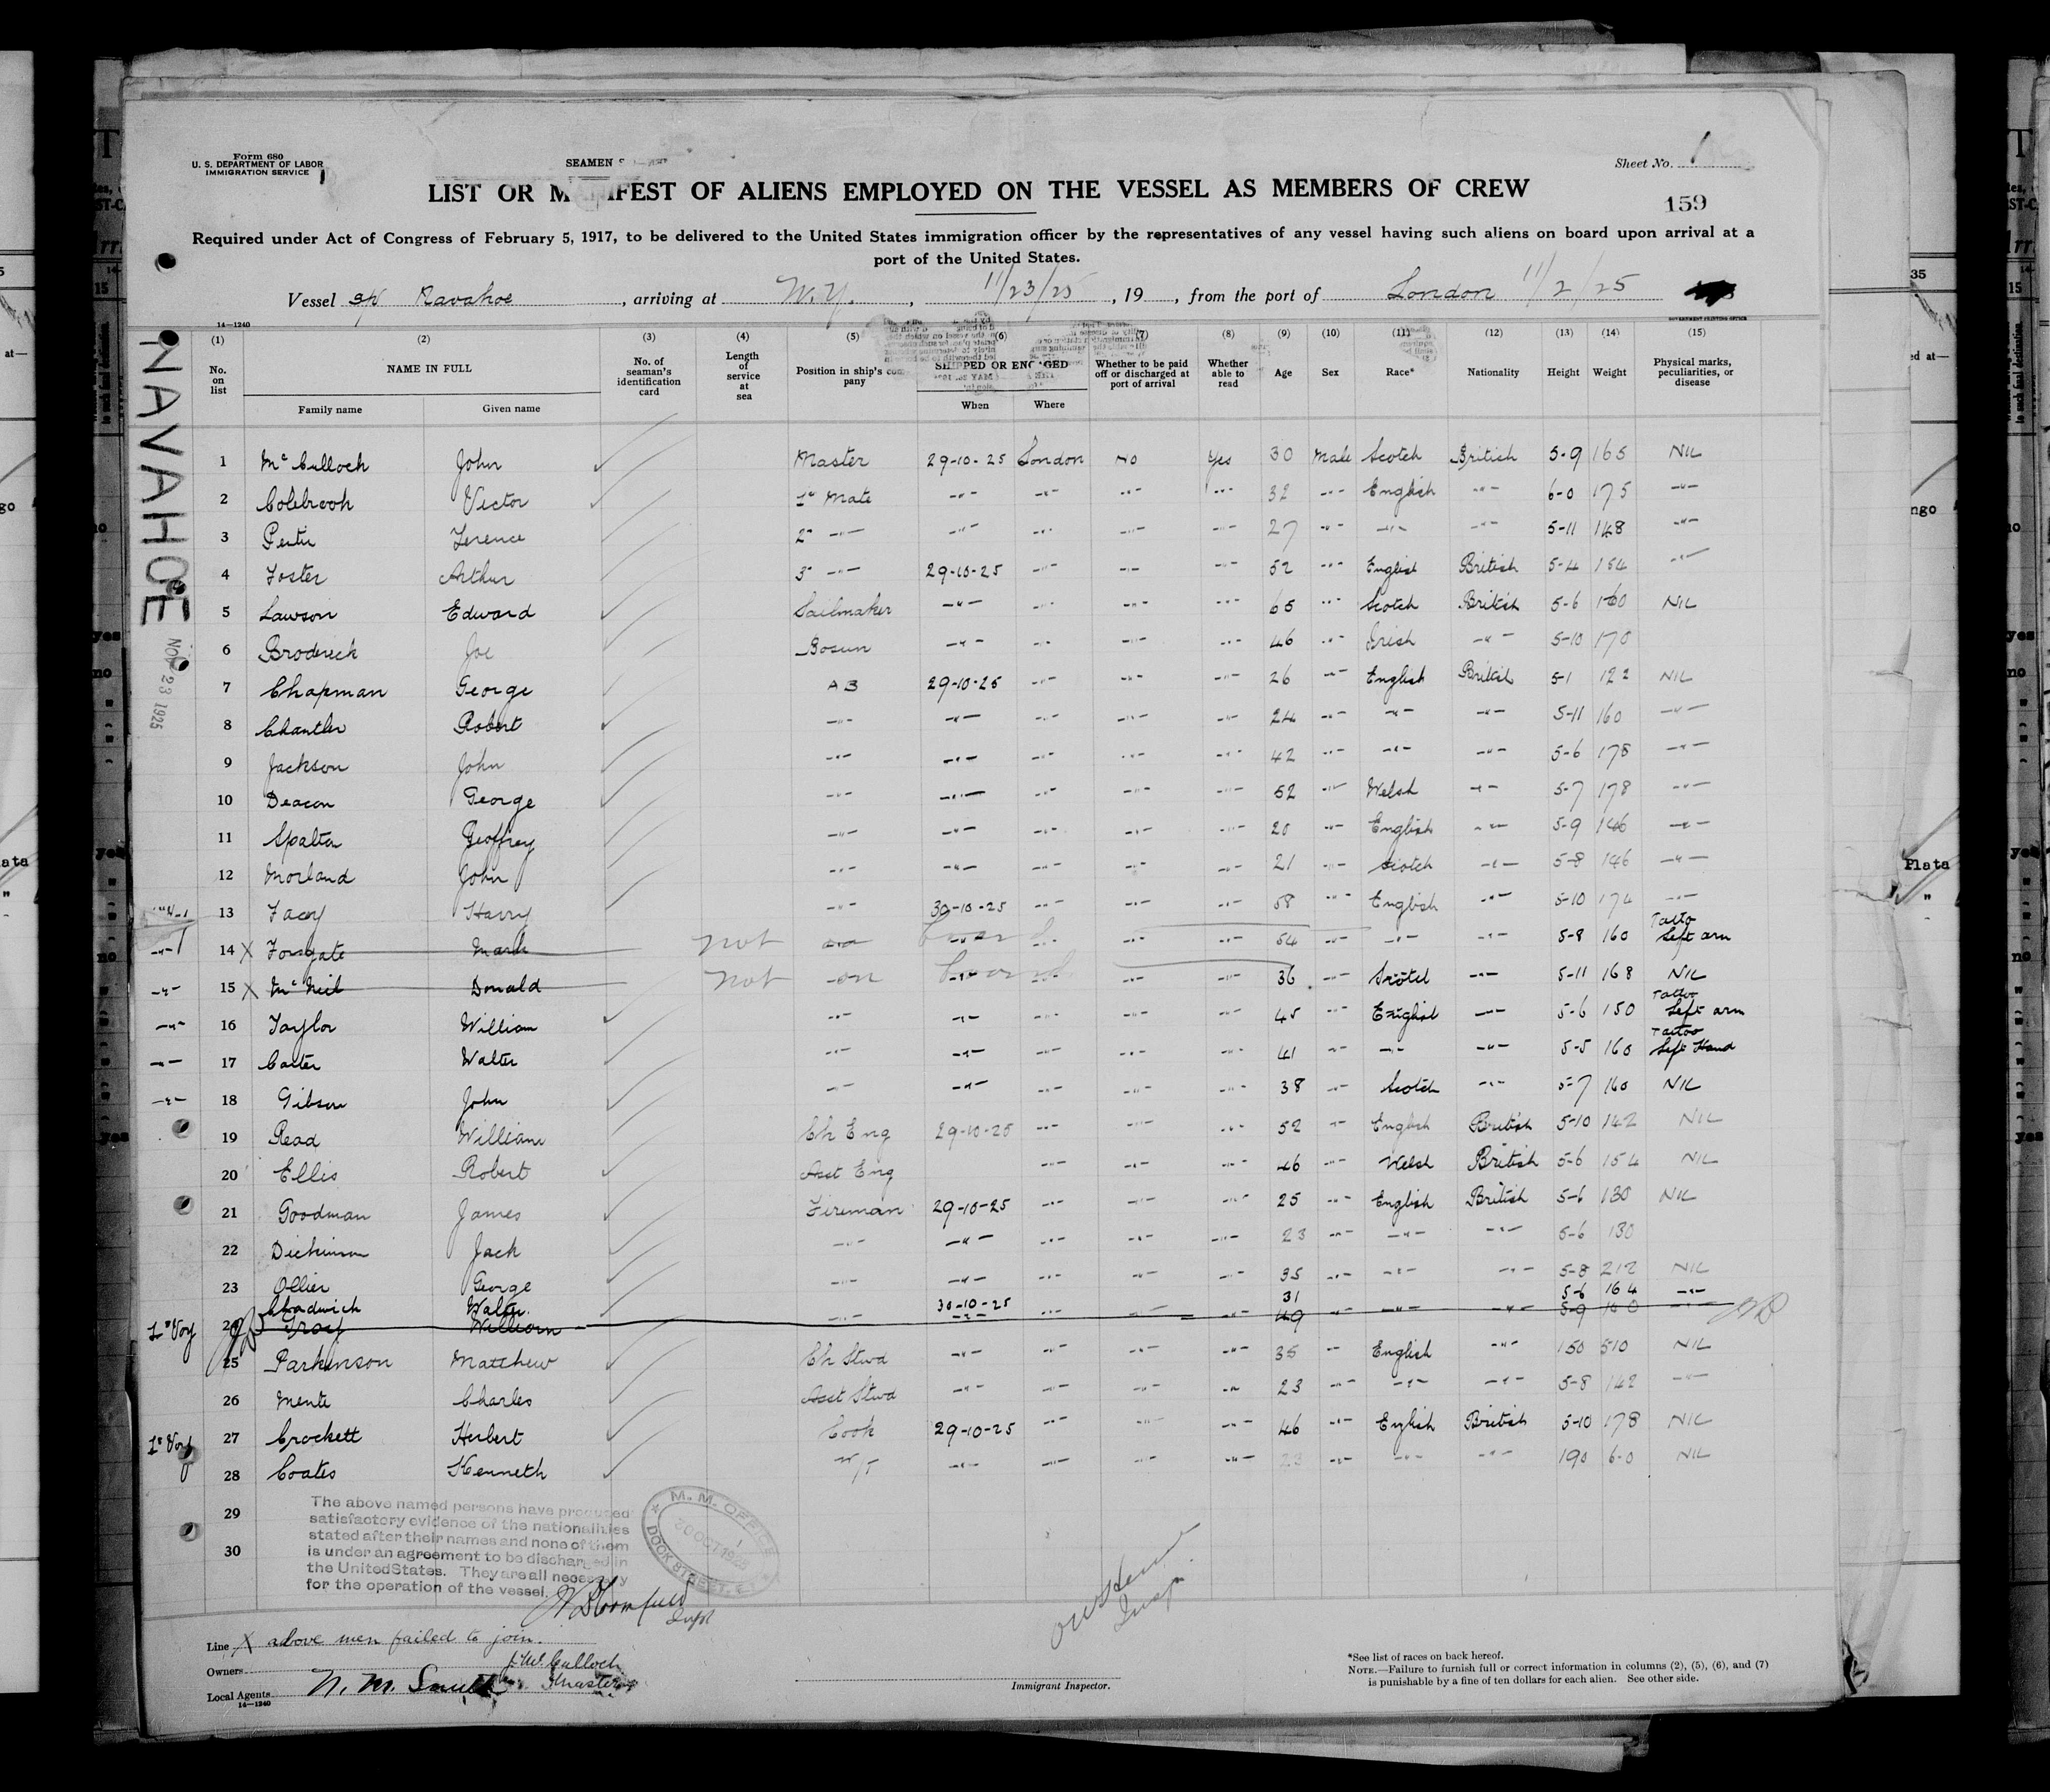 Form 680
U. S. DEPARTMENT OF LABOR
IMMIGRATION SERVICE
SEAMEN
Sheet No. 1
LIST OR MANIFEST OF ALIENS EMPLOYED ON THE VESSEL AS MEMBERS OF CREW
159
Required under Act of Congress of February 5, 1917, to be delivered to the United States immigration officer by the representatives of any vessel having such aliens on board upon arrival at a
port of the United States.
Vessel Navahoe, arriving at N.Y., 11/23/25, 19, from the port of London 11/2/25
14—1240
GOVERNMENT PRINTING OFFICE
NAVAHOE
NOV 23 1925
(1) (2) (3) (4) (5) (6) (7) (8) (9) (10) (11) (12) (13) (14) (15)
No. on list NAME IN FULL Family name Given name No. of seaman's identification card Length of service at sea Position in ship's company SHIPPED OR ENGAGED When Where Whether to be paid off or discharged at port of arrival Whether able to read Age Sex Race* Nationality Height Weight Physical marks, peculiarities, or disease
1 McCulloch John Master 29-10-25 London No Yes 30 Male Scotch British 5-9 165 NIL
2 Colebrook Victor 1st Mate -"- -"- -"- -"- 32 -"- English -"- 6-0 175 -"-
3 Terence 2" -"- -"- -"- -"- -"- 27 -"- -"- -"- 5-11 148 -"-
4 Foster Arthur 3" -"- 29-10-25 -"- -"- -"- 52 -"- English British 5-4 154 -"-
5 Lawson Edward Sailmaker -"- -"- -"- -"- 65 -"- Scotch British 5-6 160 NIL
6 Broderick Joe Bosun -"- -"- -"- -"- 46 -"- Irish -"- 5-10 170
7 Chapman George AB 29-10-25 -"- -"- -"- 26 -"- English British 5-1 122 NIL
8 Chantler Robert -"- -"- -"- -"- -"- 24 -"- -"- -"- 5-11 160 -"-
9 Jackson John -"- -"- -"- -"- -"- 42 -"- -"- -"- 5-6 178 -"-
10 Deacon George -"- -"- -"- -"- -"- 52 -"- Welsh -"- 5-7 178 -"-
11 Spalton Geoffrey -"- -"- -"- -"- -"- 20 -"- English -"- 5-9 146 -"-
12 Morland John -"- -"- -"- -"- -"- 21 -"- Scotch -"- 5-8 146 -"-
13 Facey Harry -"- 30-10-25 -"- -"- -"- 58 -"- English -"- 5-10 174 -"-
-"- 14 X Forsgate Mark not on board -"- -"- 54 -"- -"- -"- 5-8 160 Tatto Left arm
-"- 15 X McNeil Donald not on board -"- -"- 36 Scotch -"- 5-11 168 NIL
-"- 16 Taylor William -"- -"- -"- -"- -"- 45 -"- English -"- 5-6 150 Tattoo Left arm
-"- 17 Carter Walter -"- -"- -"- -"- -"- 41 -"- -"- -"- 5-5 160 Tattoo Left Hand
-"- 18 Gibson John -"- -"- -"- -"- -"- 38 -"- Scotch -"- 5-7 160 NIL
19 Read William Ch Eng 29-10-25 -"- -"- -"- 52 -"- English British 5-10 142 NIL
20 Ellis Robert Asst Eng -"- -"- -"- 46 -"- Welsh British 5-6 154 NIL
21 Goodman James Fireman 29-10-25 -"- -"- -"- 25 -"- English British 5-6 130 NIL
22 Dickinson Jack -"- -"- -"- -"- -"- 23 -"- -"- -"- 5-6 130
23 Ollier George -"- -"- -"- -"- -"- 35 -"- -"- -"- 5-8 212 NIL
Chadwick Walter 30-10-25 31 5-6 164 -"-
1st Voy 24 Troy William -"- -"- -"- -"- -"- 49 -"- -"- 5-9 160 -"-
25 Parkinson Matthew Ch Stwd -"- -"- -"- -"- 35 -"- English -"- 150 510 NIL
26 Mente Charles Asst Stwd -"- -"- -"- -"- 23 -"- -"- -"- 5-8 142 -"-
1st Voy 27 Crockett Herbert Cook 29-10-25 -"- -"- -"- 46 -"- English British 5-10 178 NIL
28 Coates Kenneth W/T -"- -"- -"- -"- 23 -"- -"- -"- 190 6-0 NIL
29
30
The above named persons have produced
satisfactory evidence of the nationalities
stated after their names and none of them
is under an agreement to be discharged in
the United States. They are all necessary
for the operation of the vessel.
M. M. OFFICE
DOCK STREET, E.1
Bloomfield
Supt
Insp.
Line X above men failed to join.
Owners J. McCulloch
Local Agents N. M. Smith Master
14—1240
Immigrant Inspector.
*See list of races on back hereof.
NOTE.—Failure to furnish full or correct information in columns (2), (5), (6), and (7)
is punishable by a fine of ten dollars for each alien. See other side.